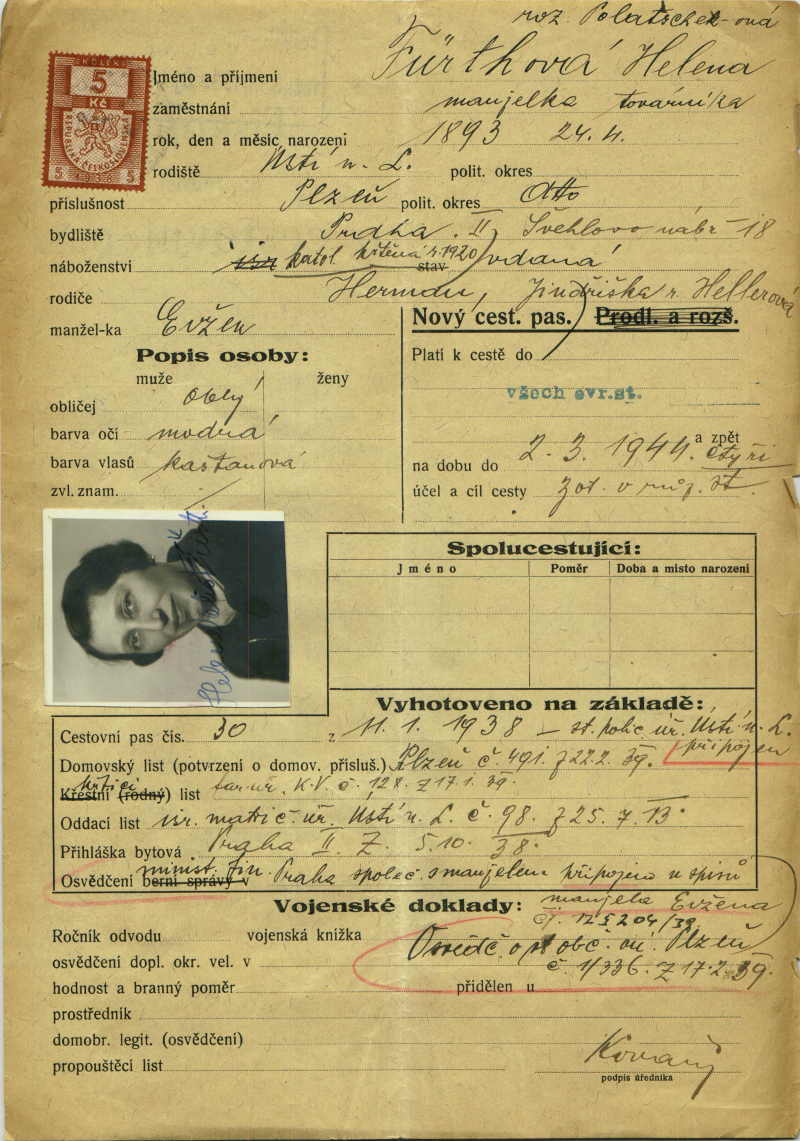 roz. Polatschek-ová
Jméno a příjmení Fürthová Helena
zaměstnání manželka továrníka
rok, den a měsíc narození 1893 24.4.
rodiště Ústí n. L. polit. okres
příslušnost Plzeň polit. okres
bydliště Praha II Švehlovo nábř 18
náboženství isr katol křtěná r. 1920 stav vdaná
rodiče Herman, Jindřiška r. Hellerová
manžel-ka Evžen
KOLEK
5
Kč
REPUBLIKA ČESKOSLOVENSKÁ
5 5
Popis osoby:
muže ženy
obličej oblý
barva očí modrá
barva vlasů kaštanová
zvl. znam.
Nový cest. pas. Prodl. a rozš.
Platí k cestě do
všech evr.st.
na dobu do 2. 3. 1944. a zpět čtyři
účel a cíl cesty zot. v růz. st.
Spolucestující:
Jméno Poměr Doba a místo narození
Vyhotoveno na základě:
Cestovní pas čís. 30 z 11. 1. 1938 – st. polic. úř. Ústí n. L.
připojen
Domovský list (potvrzení o domov. přísluš.) Plzeň č. 491. z 22.2. 39.
křticí
Křestní (rodný) list far. úř. K.V. č. 128 z 17.1. 39.
Oddací list isr. matič. úř. Ústí n. L. č. 98. z 25. 7. 13.
Přihláška bytová Praha II. z. 5.10. 38.
Osvědčení berní správy v minist. fin. Praha společ. s manželem připojeno u spisů
manžela Evžena
Vojenské doklady: čj. 125204/39
Ročník odvodu vojenská knížka
Osvědč. o st. obč. Plzeň
osvědčení dopl. okr. vel. v č. 1/336. z 17.2. 39.
hodnost a branný poměr přidělen u
prostředník
domobr. legit. (osvědčení)
propouštěcí list
podpis úředníka